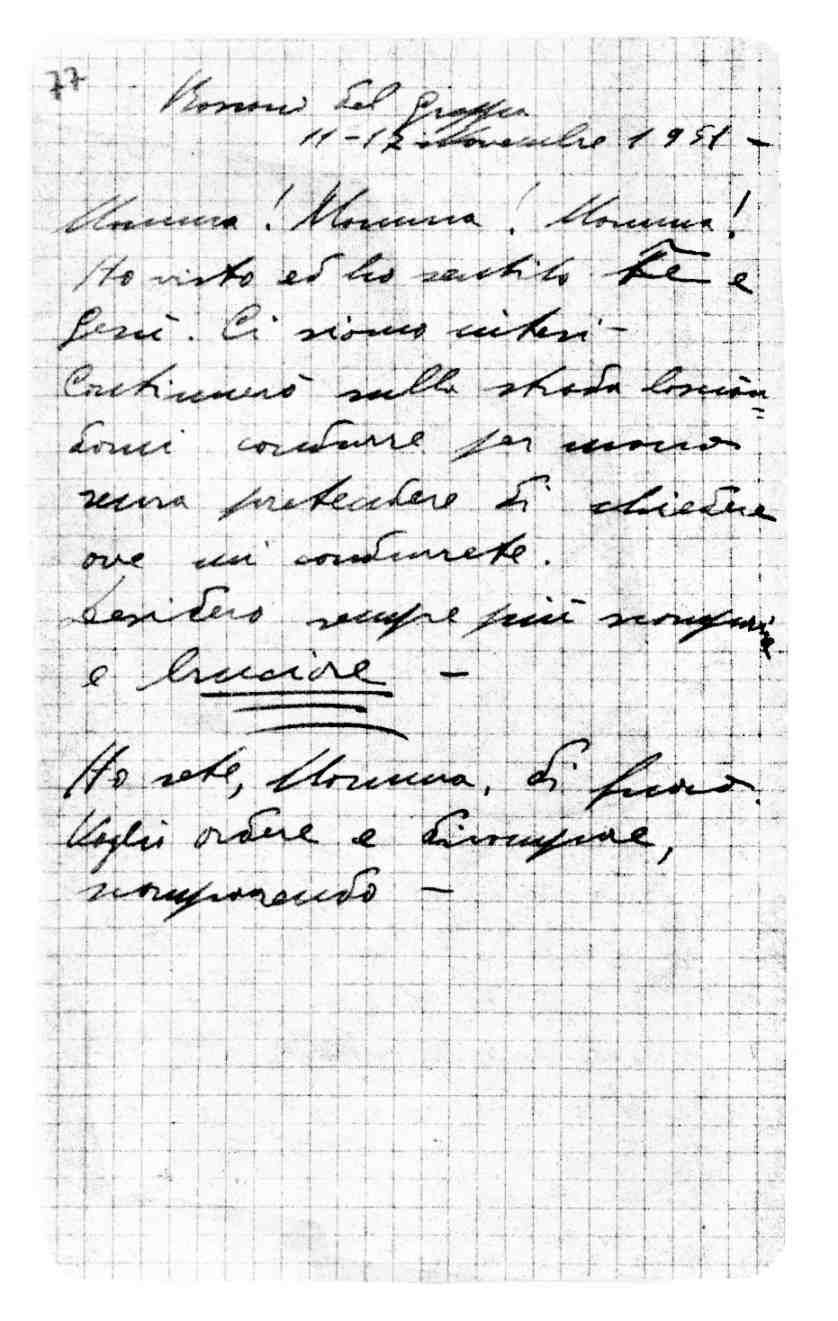 77
Romano del Grappa
11-12 novembre 1951 -
Mamma! Mamma! Mamma!
Ho visto ed ho sentito te e
Gesù. Ci siamo intesi -
Continuerò sulla strada lascian=
domi condurre per mano
senza pretendere di chiedere
ove mi condurrete.
Desidero sempre più scomparire
e bruciare -
Ho sete, Mamma, di fuoco.
Voglio ardere e divampare,
scomparendo -